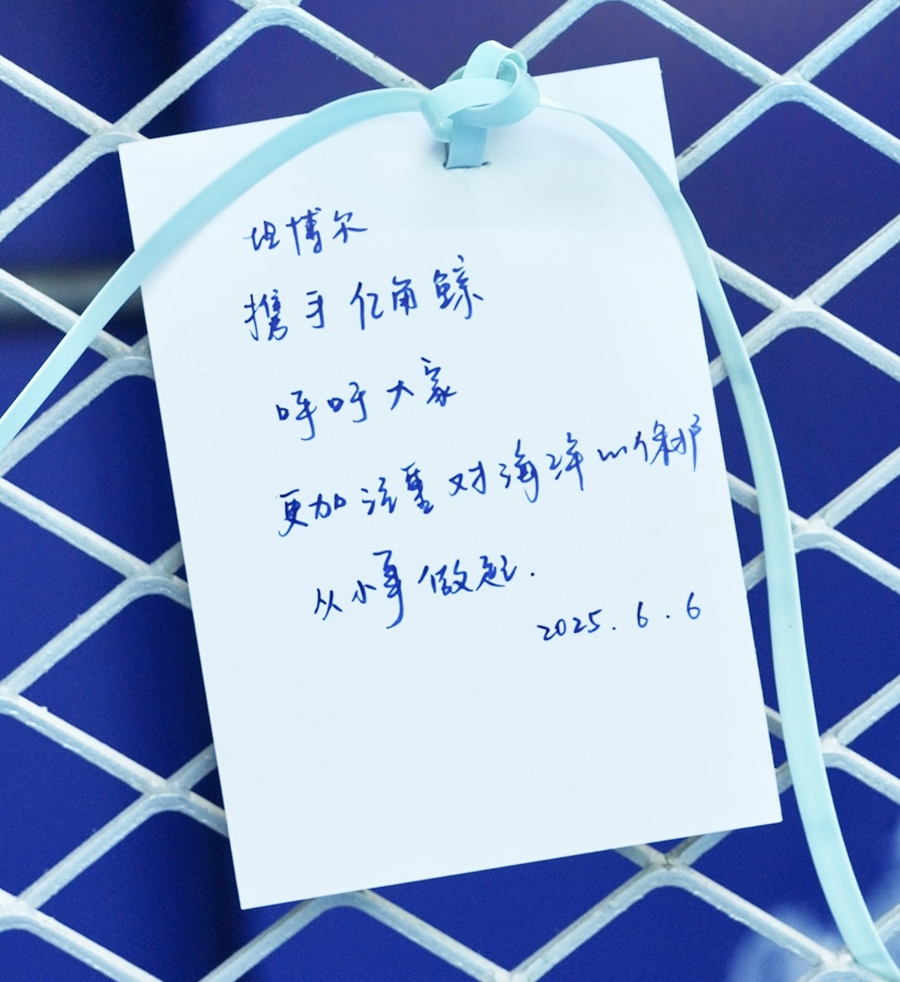 坦博尔
携手亿角鲸
呼吁大家
更加注重对海洋的保护
从小事做起.
2025.6.6